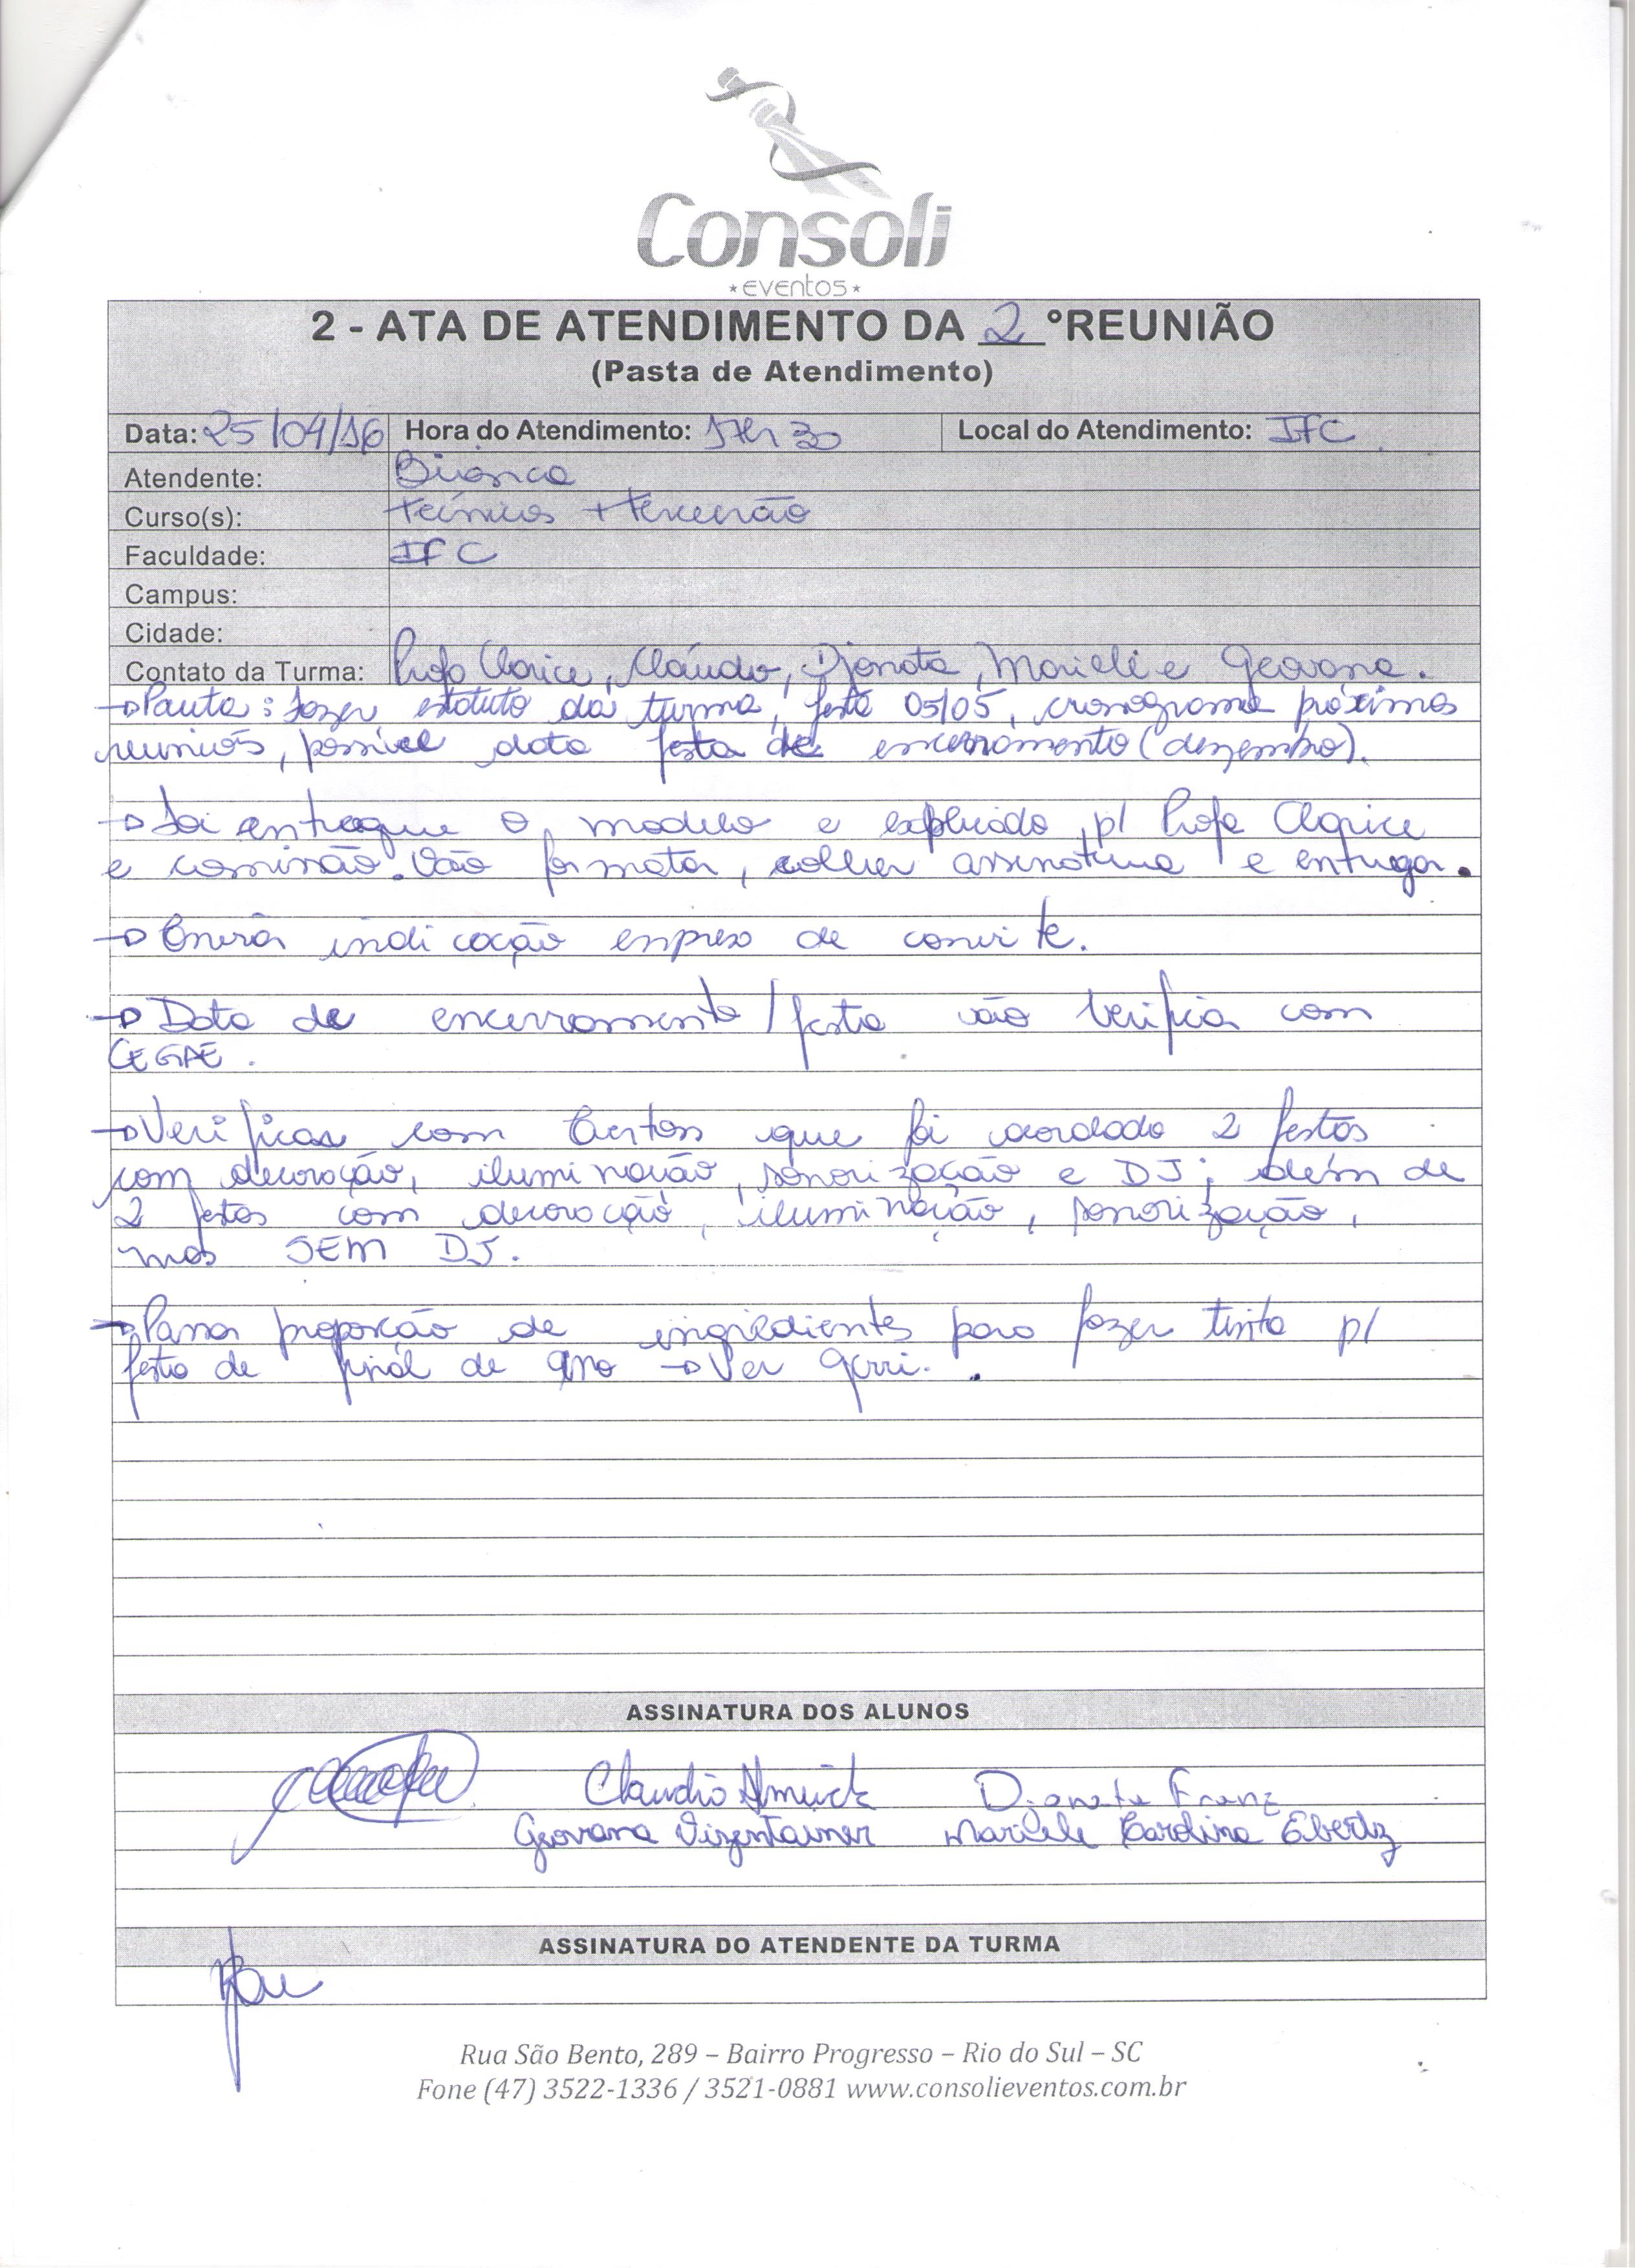 Consoli
★eventos★
2 - ATA DE ATENDIMENTO DA 2 °REUNIÃO
(Pasta de Atendimento)
Data: 25/04/16 Hora do Atendimento: 17h30 Local do Atendimento: IFC
Atendente: Bianca
Curso(s): técnicos + terceirão
Faculdade: IFC
Campus:
Cidade:
Contato da Turma: Profa Clarice, Cláudio, Djonata, Marieli e Geovana.
→ Pauta: fazer estatuto da turma, festa 05/05, cronograma próximas
reuniões, possível data festa de encerramento (dezembro).
→ Foi entregue o modelo e explicado p/ Profa Clarice
e comissão. Vão formatar, colher assinatura e entregar.
→ Enviar indicação empresa de convite.
→ Data de encerramento/festa vão verificar com
CEGAE.
→ Verificar com que foi acordado 2 festas
com decoração, iluminação, sonorização e DJ; além de
2 festas com decoração, iluminação, sonorização,
mas SEM DJ.
→ Passar proporção de ingredientes para fazer tinta p/
festa de final de ano → Ver
ASSINATURA DOS ALUNOS
Claudio Djonata Franz
Geovana Vizentainer Marieli Carolina Ebertz
ASSINATURA DO ATENDENTE DA TURMA
Rua São Bento, 289 – Bairro Progresso – Rio do Sul – SC
Fone (47) 3522-1336 / 3521-0881 www.consolieventos.com.br